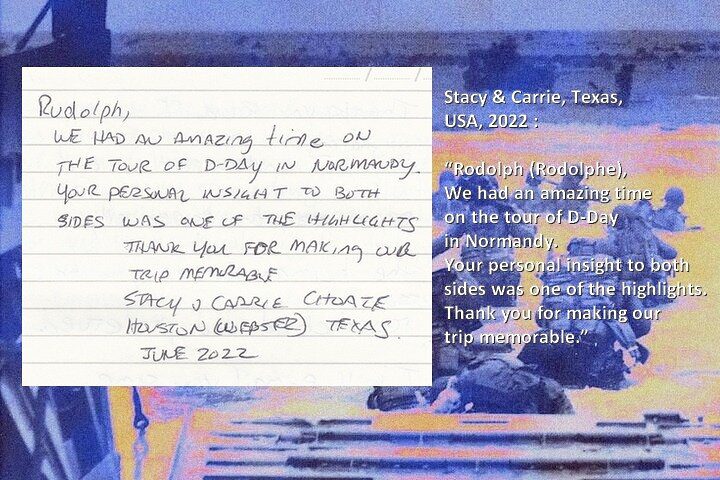 Rudolph,
WE HAD AN AMAZING time ON
THE TOUR OF D-DAY IN NORMANDY.
YOUR PERSONAL INSIGHT TO BOTH
SIDES WAS ONE OF THE HIGHLIGHTS
THANK YOU FOR MAKING OUR
TRIP MEMORABLE
STACY & CARRIE CHOATE
HOUSTON (WEBSTER) TEXAS.
JUNE 2022
Stacy & Carrie, Texas,
USA, 2022 :
“Rodolph (Rodolphe),
We had an amazing time
on the tour of D-Day
in Normandy.
Your personal insight to both
sides was one of the highlights.
Thank you for making our
trip memorable.”